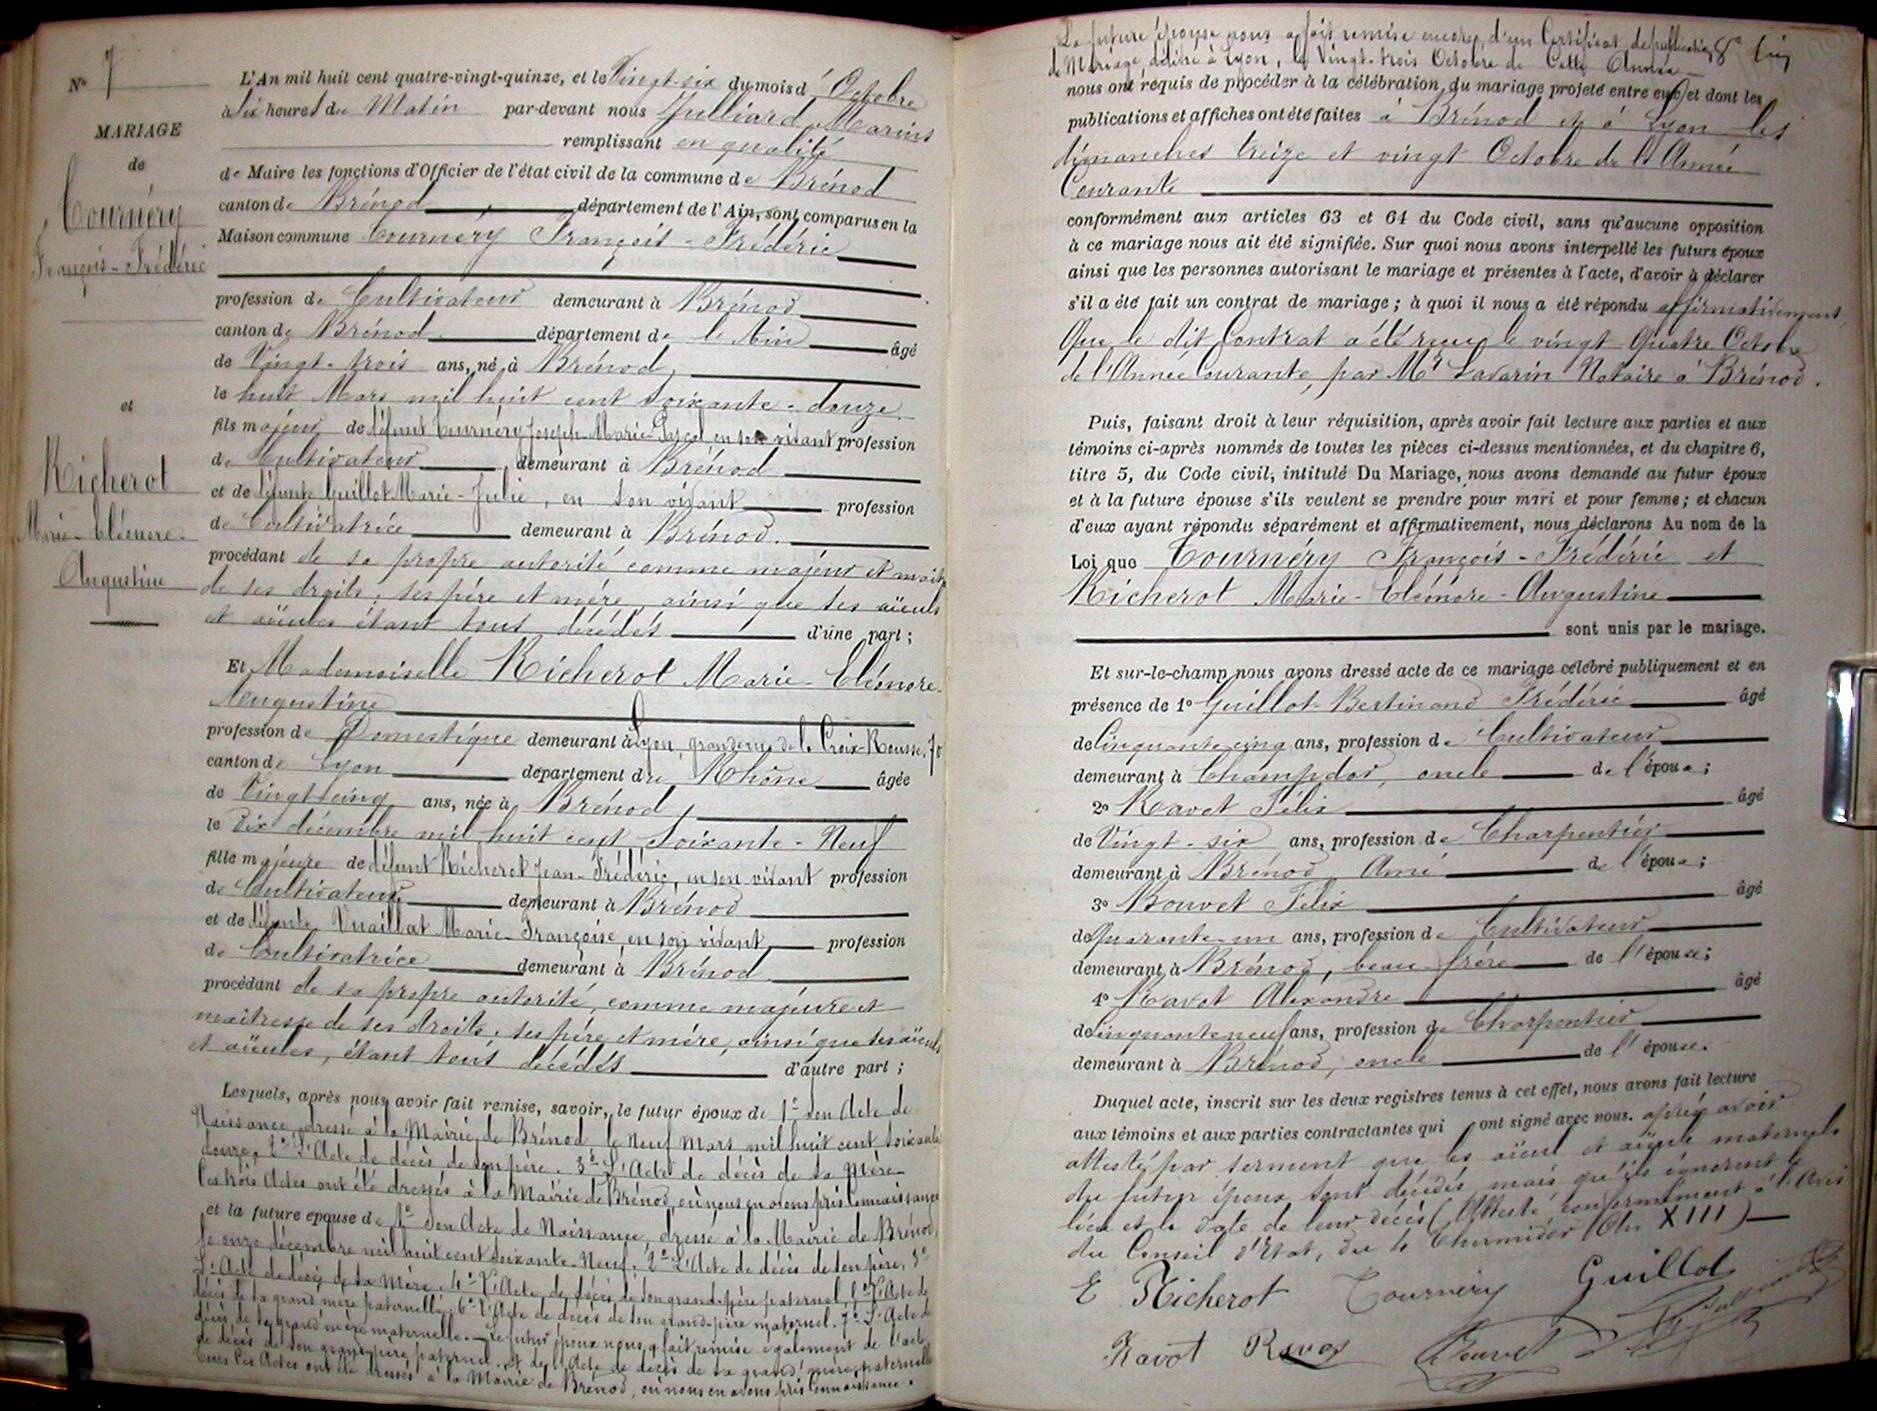 N° 7
MARIAGE
de
Tournéry
François-Frédéric
et
Richerot
Marie-Cléonore-
Augustine
L'An mil huit cent quatre-vingt-quinze, et le Vingt-six du mois d'Octobre
à Six heures du Matin par-devant nous Julliard Marius
remplissant en qualité
de Maire les fonctions d'Officier de l'état civil de la commune de Brénod
canton de Brénod, département de l'Ain, sont comparus en la
Maison commune Tournery François-Frédéric
profession de Cultivateur demeurant à Brénod
canton de Brénod département de l'Ain âgé
de Vingt-trois ans, né à Brénod
le huit Mars mil huit cent soixante-douze
fils majeur de défunt Tournéry Joseph-Marie-Pascal en son vivant profession
de Cultivateur, demeurant à Brénod
et de défunte Guillot Marie-Julie, en son vivant profession
de Cultivatrice demeurant à Brénod.
procédant de sa propre autorité comme majeur et maître
de ses droits; ses père et mère, ainsi que ses aïeuls
et aïeules étant tous décédés d'une part;
Et Mademoiselle Richerot Marie-Cléonore-
Augustine
profession de Domestique demeurant à Lyon, grande rue de la Croix-Rousse, 70
canton de Lyon département du Rhône âgée
de Vingt cinq ans, née à Brénod
le Dix décembre mil huit cent soixante-Neuf
fille majeure de défunt Richerot Jean-Frédéric, en son vivant profession
de Cultivateur demeurant à Brénod
et de défunte Vuaillat Marie-Françoise, en son vivant, profession
de Cultivatrice demeurant à Brénod
procédant de sa propre autorité, comme majeure et
maîtresse de ses droits; ses père et mère, ainsi que ses aïeuls
et aïeules, étant tous décédés d'autre part;
Lesquels, après nous avoir fait remise, savoir, le futur époux de 1° son Acte de
Naissance, dressé à la Mairie de Brénod, le Neuf Mars mil huit cent soixante
douze, 2° L'Acte de décès de son père. 3° L'Acte de décès de sa Mère
Ces trois Actes ont été dressés à la Mairie de Brénod, où nous en avons pris connaissance
et la future épouse de 1° Son Acte de Naissance, dressé à la Mairie de Brénod,
le onze décembre mil huit cent soixante-Neuf. 2° L'Acte de décès de son père, 3°
L'Acte de décès de sa Mère. 4° L'Acte de décès de son grand-père paternel, 5° L'Acte de
décès de sa grand mère paternelle. 6° L'Acte de décès de son grand-père maternel. 7° L'Acte de
décès de sa grand mère maternelle. Le futur époux nous a fait remise également de l'acte
de décès de son grand-père paternel, et de l'Acte de décès de sa grand'mère paternelle
Tous ces Actes ont été dressés à la Mairie de Brénod, où nous en avons pris connaissance.
La future épouse nous a fait remise encore, d'un Certificat de publication 8°
de Mariage délivré à Lyon, le Vingt-trois Octobre de Cette Année
nous ont requis de procéder à la célébration du mariage projeté entre eux, et dont les
publications et affiches ont été faites à Brénod et à Lyon les
dimanches treize et vingt Octobre de l'Année
Courante
conformément aux articles 63 et 64 du Code civil, sans qu'aucune opposition
à ce mariage nous ait été signifiée. Sur quoi nous avons interpellé les futurs époux
ainsi que les personnes autorisant le mariage et présentes à l'acte, d'avoir à déclarer
s'il a été fait un contrat de mariage; à quoi il nous a été répondu affirmativement,
Que le dit Contrat a été reçu le vingt-Quatre Octobre
de l'Année Courante, par Mr Savarin Notaire à Brénod.
Puis, faisant droit à leur réquisition, après avoir fait lecture aux parties et aux
témoins ci-après nommés de toutes les pièces ci-dessus mentionnées, et du chapitre 6,
titre 5, du Code civil, intitulé Du Mariage, nous avons demandé au futur époux
et à la future épouse s'ils veulent se prendre pour mari et pour femme; et chacun
d'eux ayant répondu séparément et affirmativement, nous déclarons Au nom de la
Loi que Tournéry François-Frédéric et
Richerot Marie-Cléonore-Augustine
sont unis par le mariage.
Et sur-le-champ nous avons dressé acte de ce mariage célébré publiquement et en
présence de 1° Guillot-Bertinand Frédéric âgé
de Cinquante cinq ans, profession de Cultivateur
demeurant à Champdor, oncle de l'époux;
2° Ravet Félix âgé
de Vingt-six ans, profession de Charpentier
demeurant à Brénod, Ami de l'époux;
3° Bouvet Félix âgé
de Quarante-un ans, profession de Cultivateur
demeurant à Brénod, beau-frère de l'épouse;
4° Ravet Alexandre âgé
de Cinquante neuf ans, profession de Charpentier
demeurant à Brénod, oncle de l'épouse.
Duquel acte, inscrit sur les deux registres tenus à cet effet, nous avons fait lecture
aux témoins et aux parties contractantes qui ont signé avec nous. après avoir
attesté par serment que les aïeul et aïeule maternels
du futur époux sont décédés, mais qu'ils ignorent le
lieu et la date de leur décès (Attesté conformément à l'Avis
du Conseil d'Etat, du 4 Thermidor (An XIII)
E Richerot Tournéry Guillot
Ravet Ravet Bouvet